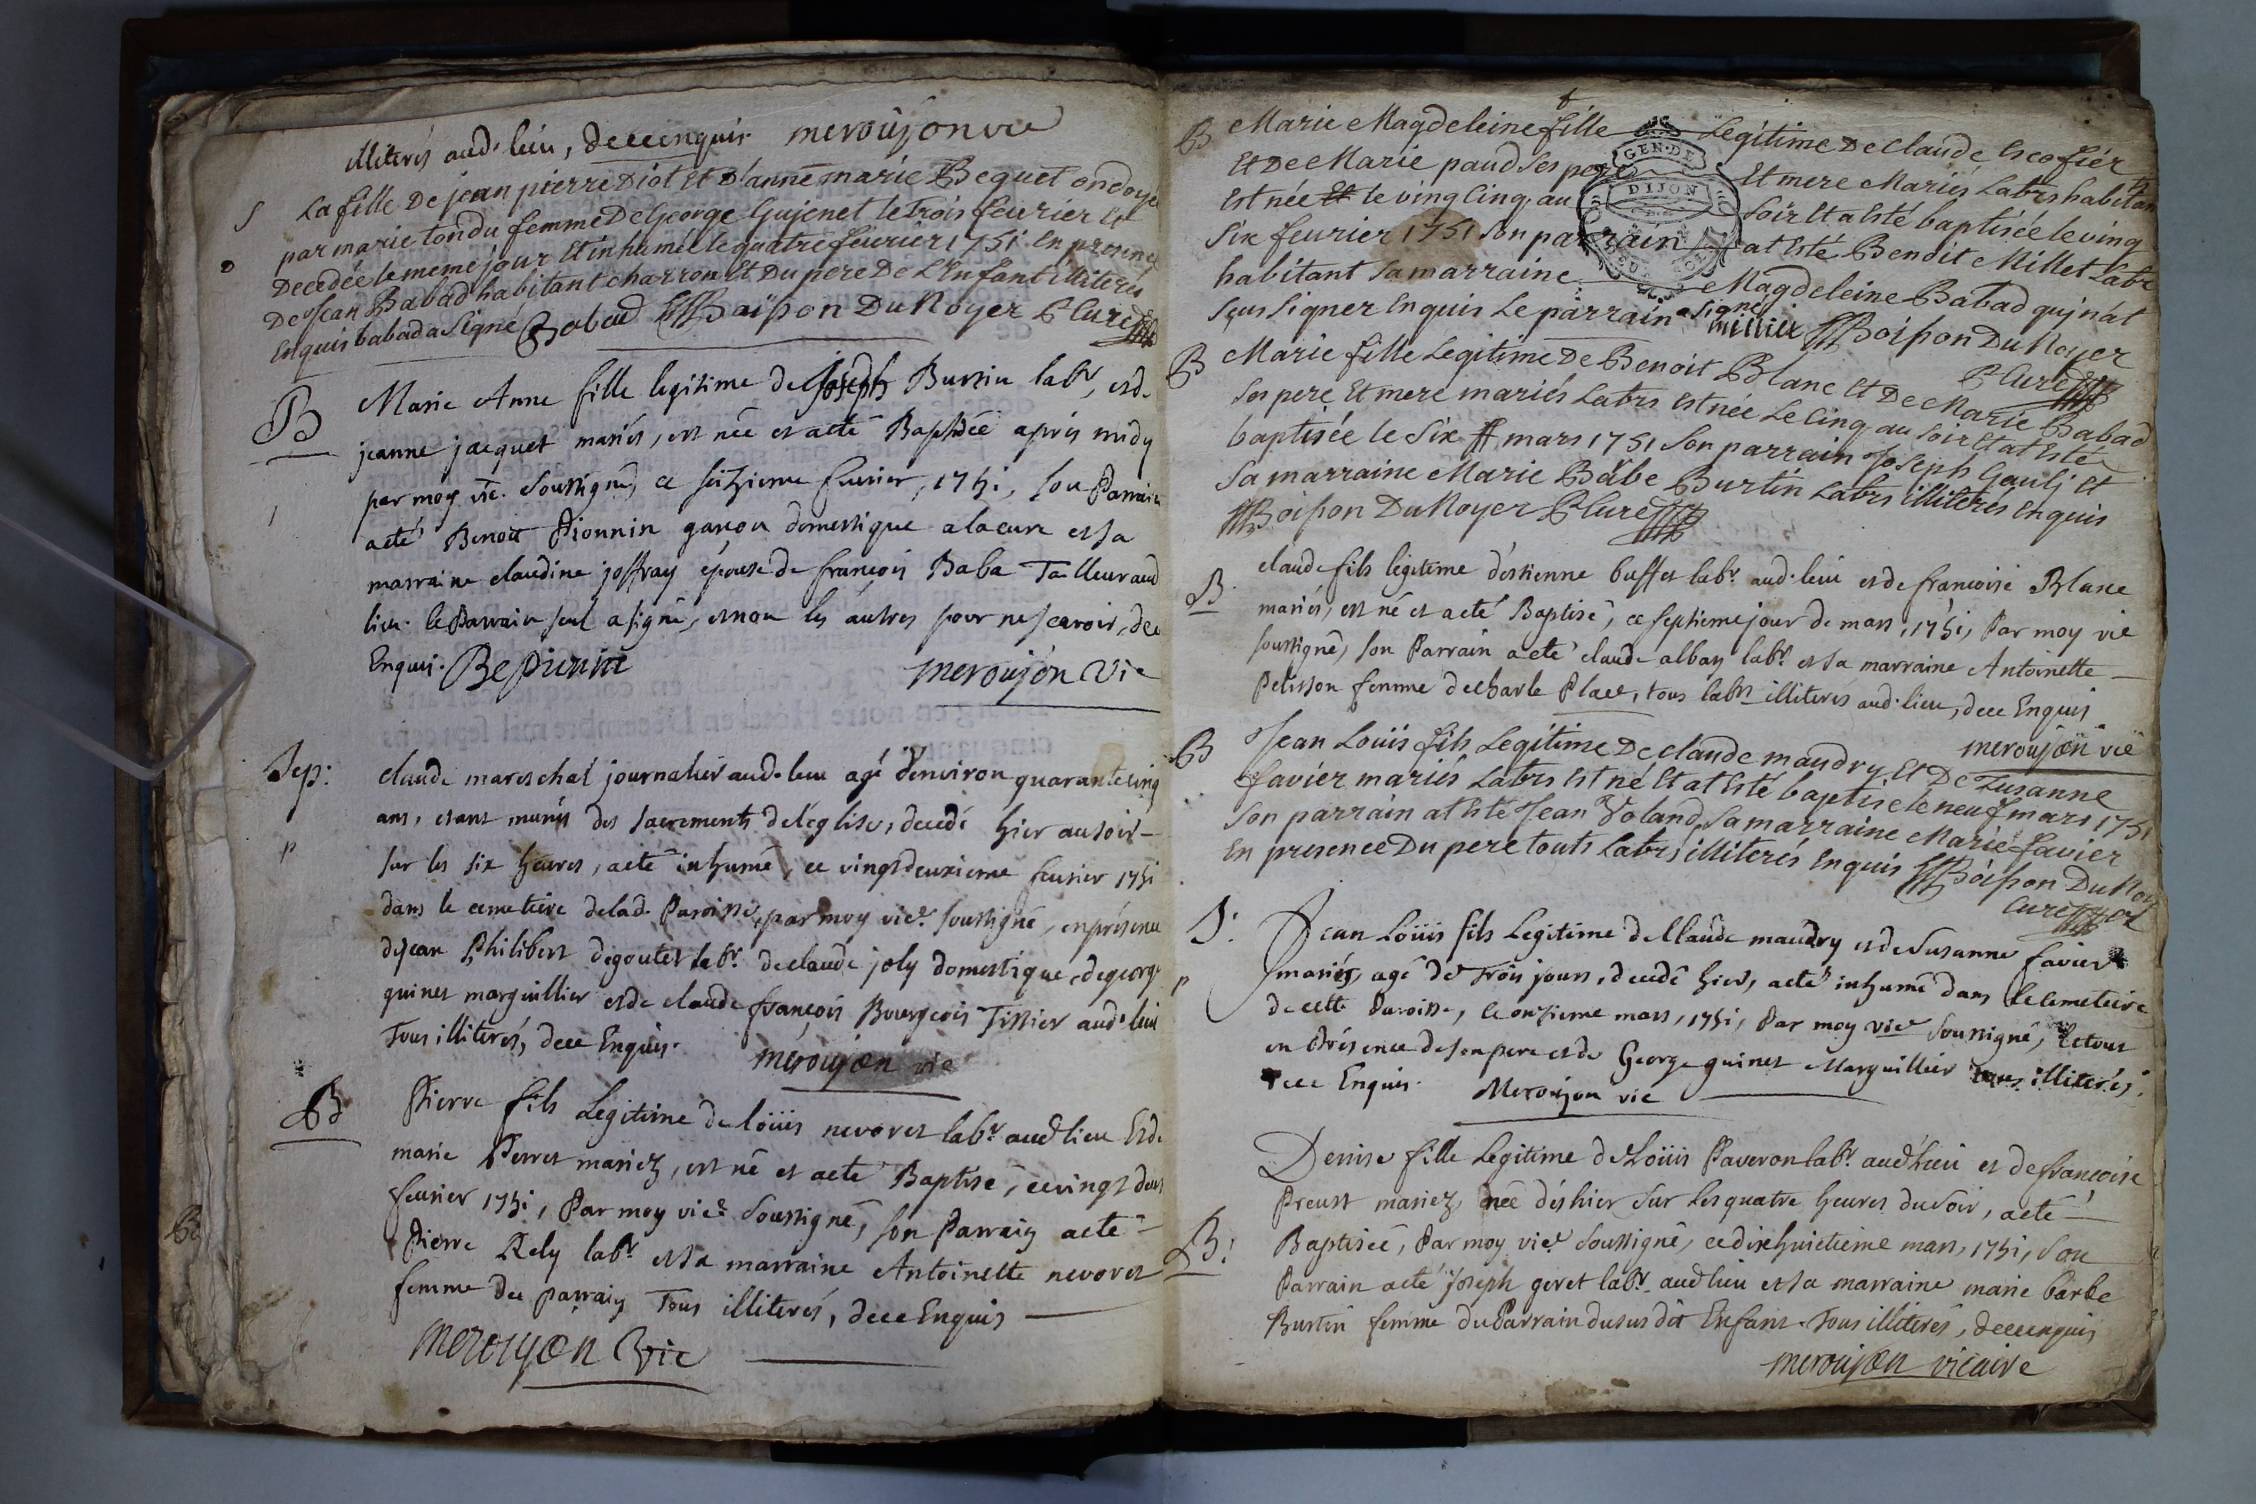 illiterés aud. lieu, de ce enquis. meroujon vic
S La fille De jean pierre Diot Et D'anne marie Bequet ondoyé
par marie tondu femme De George Gujenet le Trois feurier Et
Decedée le meme jour Et inhumée le quatre feurier 1751 En presence
De Jean Babad habitant charron Et Du pere De L'Enfant illiterés
Enquis babad a Signé Babad Boisson Du Noyer Curé
B Marie Anne fille legitime de Joseph Burtin labr, et d.
jeanne jacquet mariés, est née et a eté Baptisée aprés midy
par moy vic. soussigné, ce seizieme feurier, 1751, son Parrain
a eté Benoit Pionnin garçon domestique a la cure et sa
marraine claudine joffray épouse de françois Baba Tailleur aud
lieu. le Parrain seul a signé, et non les autres pour ne scavoir, de ce
Enquis. Be Pionin meroujon Vic
Sep: claude mareschal journalier aud. lieu agé d'environ quarante cinq
ans, etant munis des sacrements de l'eglise, decedé hier au soir
sur les six heures, a eté inhumé, ce vingt deuxieme feurier 1751
dans le cemetiere de lad. Paroisse, par moy vic. soussigné, en présence
de jean Philibert degoutet labr. de claude joly domestique, de george
guinet marguillier et de claude françois Bourgeois Tissier aud. lieu
Tous illiterés, de ce Enquis. meroujon vic
B Pierre fils Legitime de loüis nevoret labr. aud lieu Et de
marie Perret mariez, est né et a eté Baptisé, ce vingt deux
feurier 1751, Par moy vic. Soussigné, son Parrain a eté
Pierre Rely labr. et sa marraine Antoinette nevoret
femme du parrain Tous illiterés, de ce Enquis
meroujon Vic
B Marie Magdeleine fille Legitime De Claude Escofier
Et De Marie paud Ses pere Et mere Mariés Labrs habitans
Est née Et le ving Cinq au Soir Et a Esté baptisée le ving
Six feurier 1751 Son parrain at Esté Benoit Millet Labr
habitant Sa marraine Magdeleine Babad quj n'at
Sçus Signer Enquis Le parrain a signé millier Boisson Du Noyer
Curé
B Marie fille Legitime De Benoit Blanc Et De Marie Babad
Ses pere Et mere mariés Labrs Est née Le Cinq au Soir Et at Esté
baptisée le Six mars 1751 Son parrain Joseph Gaulj Et
Sa marraine Marie Bäbe Burtin Labrs illiterés Enquis
Boisson Du Noyer Curé
B. claude fils légitime d'estienne buffet labr. aud. lieu et de francoise Blanc
mariés, est né et a eté Baptisé, ce septieme jour de mars, 1751, Par moy vic
soussigné, son Parrain a eté claude alban labr. et sa marraine Antoinette
Pelisson femme de charle Place, tous labrs illiterés aud. lieu, de ce Enquis
meroujon vic
B Jean Louis fils Legitime De claude maudry Et De Zusanne
favier mariés Labrs Est né Et at Esté baptisé le neuf mars 1751
Son parrain at Esté Jean Voland Sa marraine Marie favier
En presence Du pere touts Labrs illiterés Enquis Boisson Du Noyer
Curé
S. Jean Loüis fils Legitime de Claude maudry et de Susanne favier
mariés, agé de Trois jours, decedé hier, a eté inhumé dans le Cemetiere
de cette Paroisse, le onzieme mars, 1751, Par moy vic Soussigné,
en Présence de son pere et de George guinet Marguillier illiterés,
de ce Enquis. Meroujon vic
Denise fille Legitime de Loüis Paveron labr. aud Lieu et de françoise
Preust mariez, née dés hier sur Les quatre heures du Soir, a eté
B. Baptisée, Par moy vic. Soussigné, ce dixhuictieme mars, 1751, Son
Parrain a eté joseph geret labr. aud lieu et sa marraine marie barbe
Burtin femme du Parrain du susdit Enfant. Tous illiterés, de ce enquis
meroujon vicaire
GEN. DE
DIJON